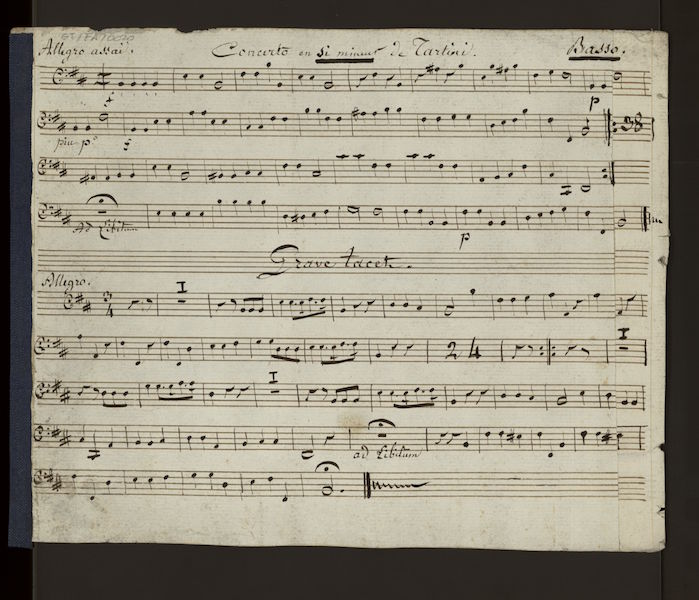 Allegro assai. Concerto en si mineur de Tartini. Basso.
p
38
piu pº
Ad Libitum
p
Grave tacet.
Allegro.
3/4 I
24 I
I
ad Libitum